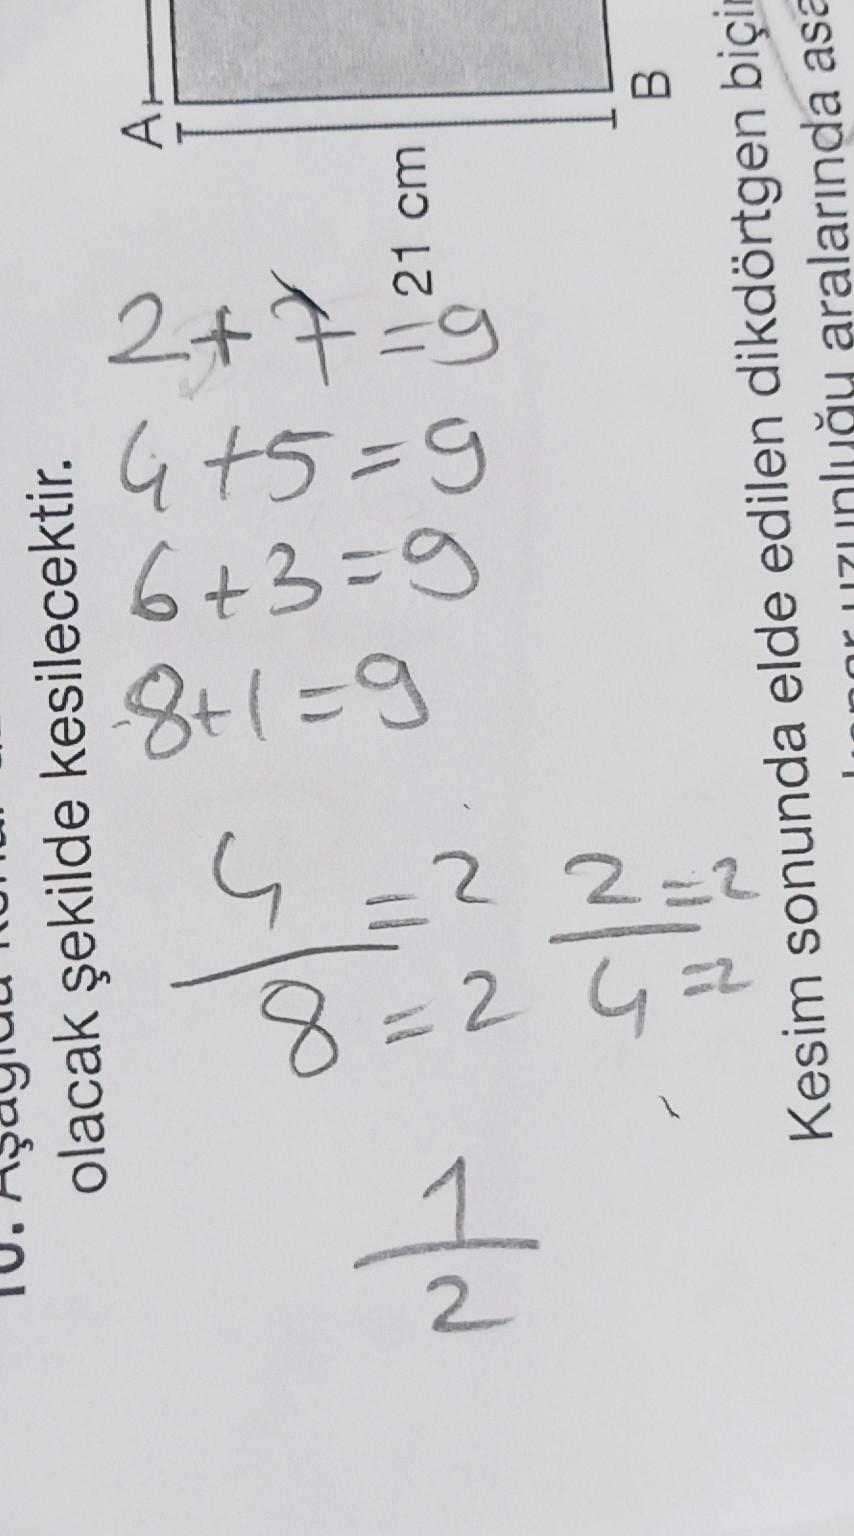 10. Aşağıda
olacak şekilde kesilecektir.
A
B
21 cm
2+7=9
4+5=9
6+3=9
8+1=9
4=2
8=2
2=2
4=2
1
2
Kesim sonunda elde edilen dikdörtgen
uzunluğu aralarında